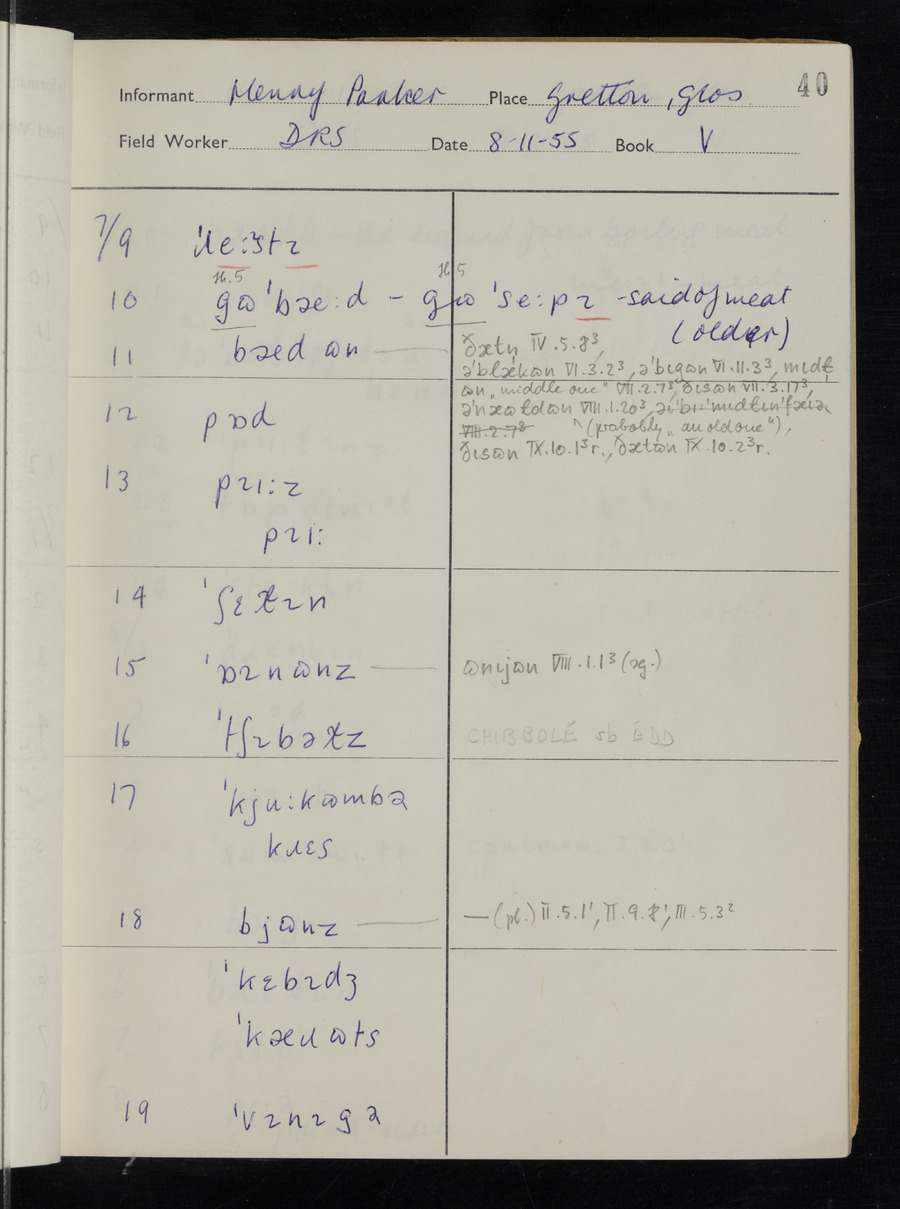 40
Informant Henry Parker Place Gretton, Glos
Field Worker DRS Date 8-11-55 Book V
7/9 ˈɹe:ʒtɪ
H.5 H.5
10 gɷˈbæ:d - gɷˈse:pɪ - said of meat
(older)
11 bæd ɷn
ðætn IV.5.8³,
əˈblækɷn VI.3.2³, əˈbɪgɷn VI.11.3³, mɪdɫ
ɷn „middle one" VII.2.7³, ðɪsɷn VII.3.17³,
VIII.1.20³,
VIII.2.7³ (probably „an old one"),
ðɪsɷn IX.10.1³r., ðætɷn IX.10.2³r.
12 pɒd
13 pɪi:z
pɪi:
14 ˈʃɛɫɪn
15 ˈɒɪnɷnz
ɷnɩjɷn VIII.1.1³ (sg.)
16 ˈtʃɪbəɫz
CHIBBOLE sb EDD
17 ˈkju:kɷmbə
kɹɛs
18 bjɷnz
— (pl.) II.5.1¹, II.9.8¹, III.5.3²
ˈkɛbɪdʒ
ˈkæɹɷts
19 ˈvɪnɪgə